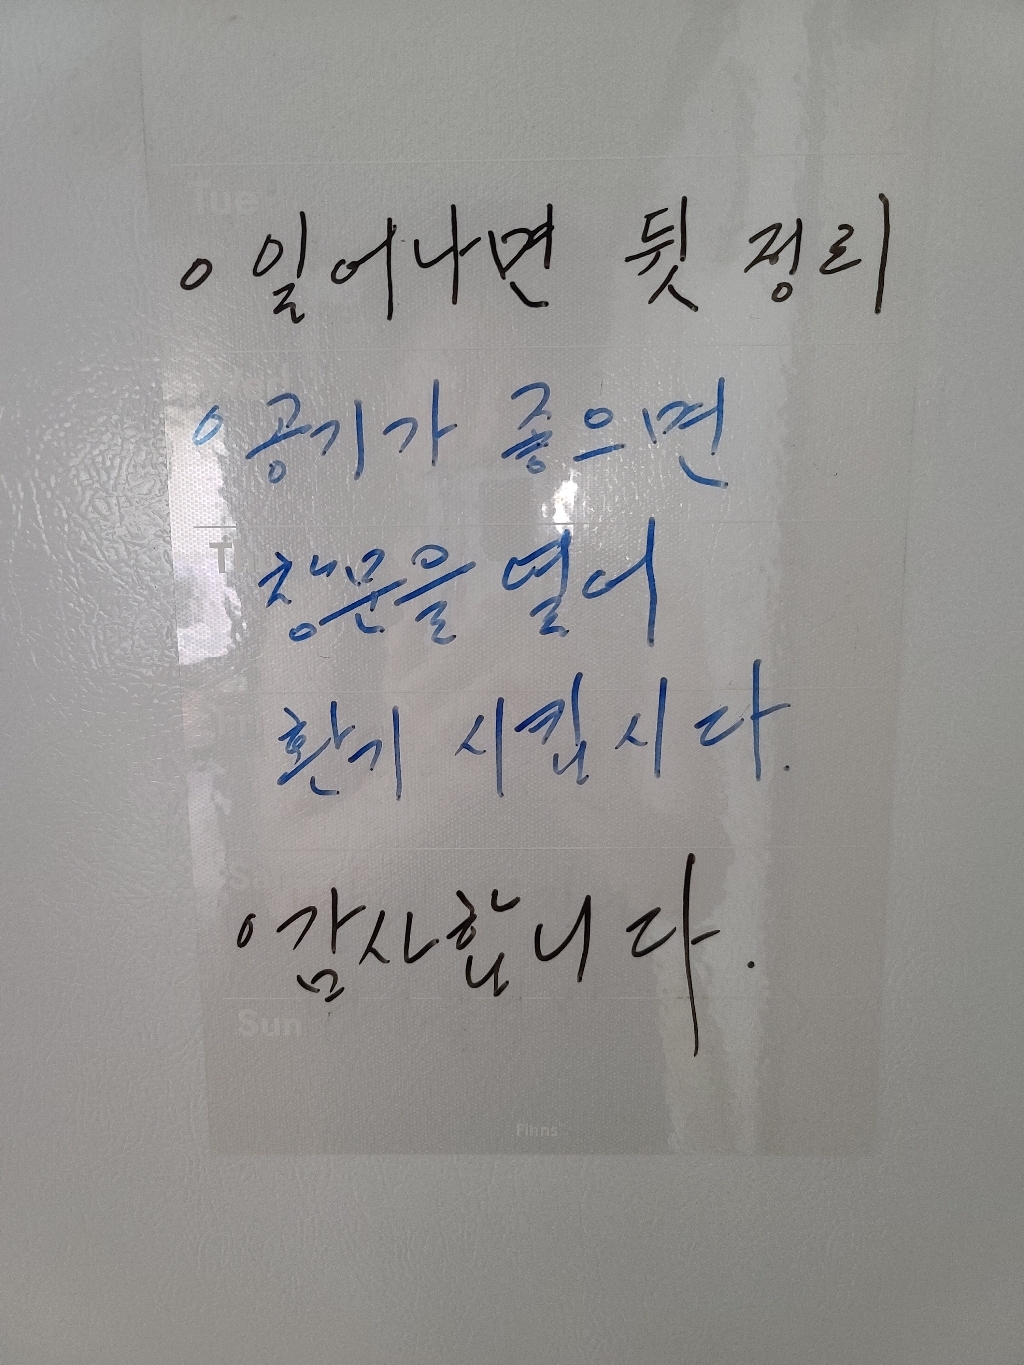 Tue
o 일어나면 뒷 정리
o 공기가 좋으면
T
창문을 열어
환기 시킵시다.
o 감사합니다.
Sun